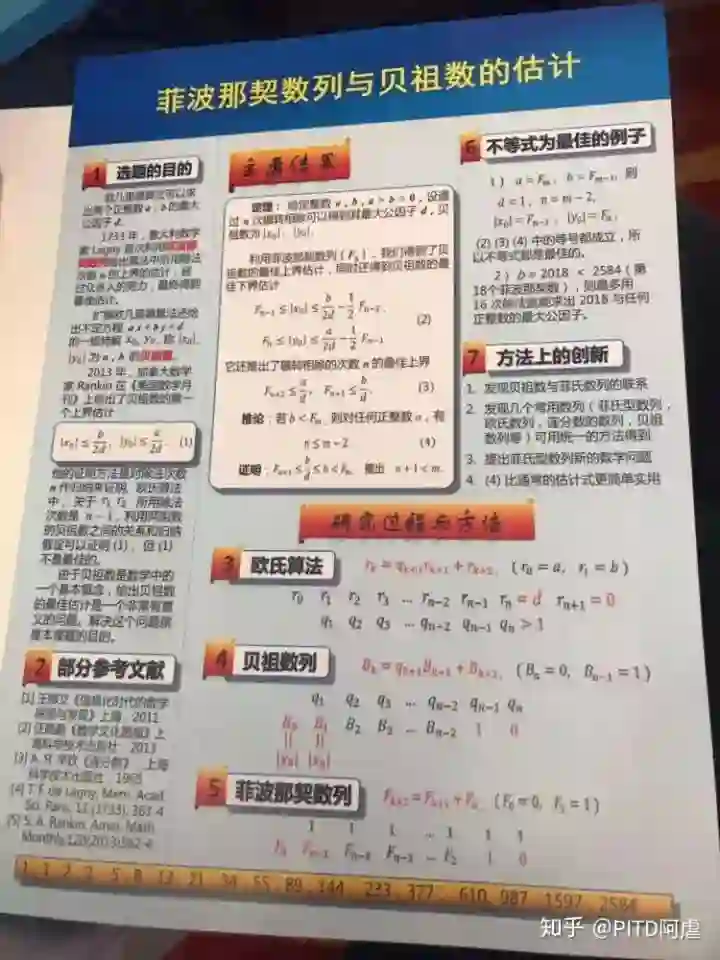 菲波那契数列与贝祖数的估计
1 选题的目的
出两个正整数 a, b 的最大
公因子 d.
1733 年，意大利数学
家 Lagny 首次利用
过众多人的努力，最终得到
最佳估计.
扩展欧几里得算法还给
出不定方程 ax+by=d
的一组特解 x₀, y₀, 称 |x₀|,
|y₀| 为 a, b 的贝祖数.
2013 年，加拿大数学
家 Rankin 在《美国数学月
刊》上给出了贝祖数的第一
个上界估计
|x₀| ≤ b/2d, |y₀| ≤ a/2d. (1)
他的证明方法是对除法次数
n 作归纳来证明. 欧氏算法
中，关于 r₁ r₂ 所用除法
次数是 n-1，利用两组数
的贝祖数之间的关系和归纳
假设可以证明 (1)，但 (1)
不是最佳的.
由于贝祖数是数学中的
一个基本概念，给出贝祖数
的最佳估计是一个非常有意
义的问题. 解决这个问题就
是本课题的目的.
2 部分参考文献
探索与发现》上海 2011
海科学技术出版社 2013
科学技术出版社 1965
[4] T. F. de Lagny, Mem. Acad.
Sci. Paris, 11 (1733), 363-4
[5] S. A. Rankin, Amer. Math.
Monthly, 120(2013)562-4
主要结果
定理：给定整数 a, b, a > b > 0, 设通
过 n 次辗转相除可以得到其最大公因子 d, 贝
祖数为 |x₀|, |y₀|.
利用菲波那契数列 {Fₙ}，我们得到了贝
祖数的最佳上界估计，同时还得到贝祖数的最
佳下界估计
Fₙ₋₁ ≤ |x₀| ≤ b/2d - 1/2 Fₙ₋₂,
(2)
Fₙ ≤ |y₀| ≤ a/2d - 1/2 Fₙ₋₁
它还推出了辗转相除的次数 n 的最佳上界
Fₙ₊₂ ≤ a/d, Fₙ₊₁ ≤ b/d. (3)
推论：若 b < Fₘ, 则对任何正整数 a, 有
n ≤ m-2 (4)
证明：Fₙ₊₁ ≤ b/d ≤ b < Fₘ, 推出 n+1 < m.
6 不等式为最佳的例子
1）a = Fₘ, b = Fₘ₋₁, 则
d = 1, n = m-2,
|x₀| = Fₙ₋₁, |y₀| = Fₙ,
(2) (3) (4) 中的等号都成立，所
以不等式都是最佳的.
2）b = 2018 < 2584（第
18个菲波那契数），则最多用
16 次除法就能求出 2018 与任何
正整数的最大公因子.
7 方法上的创新
1. 发现贝祖数与菲氏数列的联系
2. 发现几个常用数列（菲氏型数列，
欧氏数列，连分数的数列，贝祖
数列等）可用统一的方法得到
3. 提出菲氏型数列新的数学问题
4. (4) 比通常的估计式更简单实用
研究过程与方法
3 欧氏算法 rₖ = qₖ₊₁rₖ₊₁ + rₖ₊₂, (r₀ = a, r₁ = b)
r₀ r₁ r₂ r₃ ... rₙ₋₂ rₙ₋₁ rₙ = d rₙ₊₁ = 0
q₁ q₂ q₃ ... qₙ₋₂ qₙ₋₁ qₙ > 1
4 贝祖数列 Bₖ = qₖ₊₁Bₖ₊₁ + Bₖ₊₂, (Bₙ = 0, Bₙ₋₁ = 1)
q₁ q₂ q₃ ... qₙ₋₂ qₙ₋₁ qₙ
B₀ B₁ B₂ B₃ ... Bₙ₋₂ 1 0
|| ||
|y₀| |x₀|
5 菲波那契数列 Fₖ₊₂ = Fₖ₊₁ + Fₖ, (F₀ = 0, F₁ = 1)
1 1 1 ... 1 1 1
Fₙ Fₙ₋₁ Fₙ₋₂ Fₙ₋₃ ... F₂ 1 0
1 1 2 3 5 8 13 21 34 55 89 144 233 377 610 987 1597 2584
知乎 @PITD阿虐